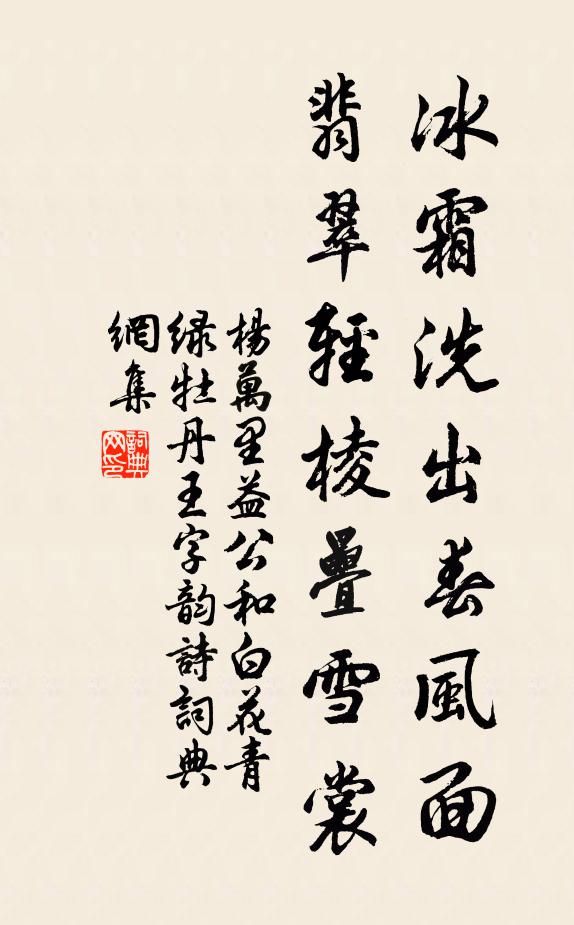 冰霜洗出春風面
翡翠輕棱疊雪裳
楊萬里益公和白花青
緑牡丹王字韵詩詞典
網集
詞典
网印